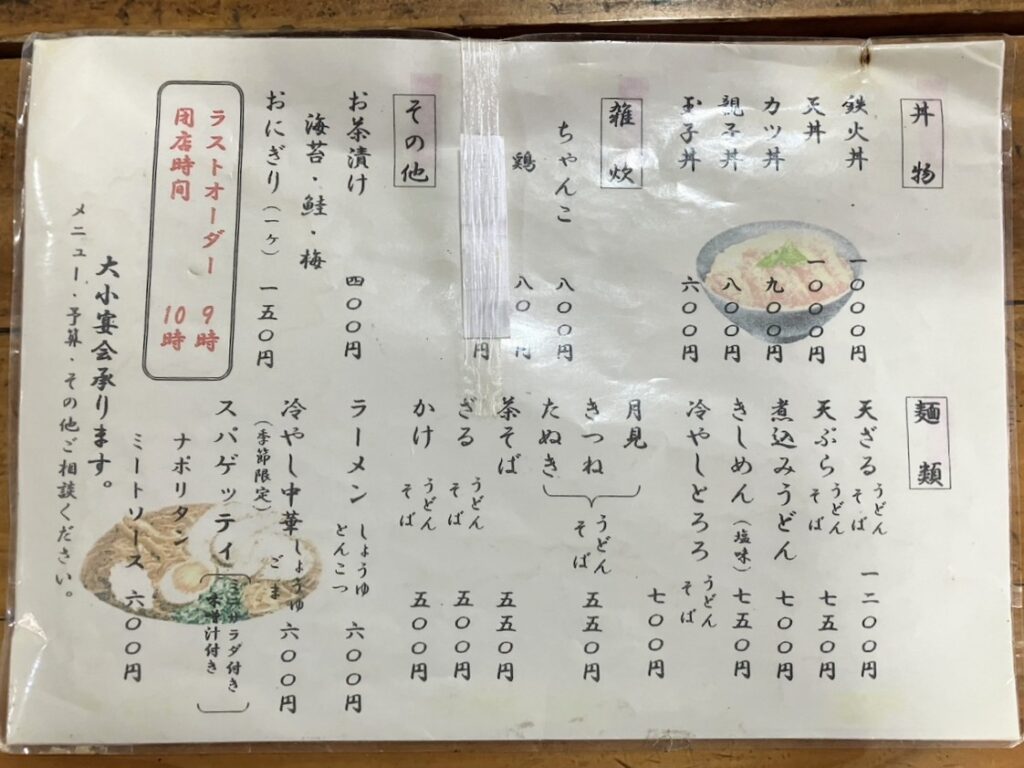 丼物
鉄火丼 一〇〇〇円
天丼 一〇〇〇円
カツ丼 九〇〇円
親子丼 八〇〇円
玉子丼 六〇〇円
雑炊
ちゃんこ 八〇〇円
鶏 八〇 円
円
その他
お茶漬け 四〇〇円
海苔・鮭・梅
おにぎり(一ヶ) 一五〇円
ラストオーダー 9時
閉店時間 10時
麺類
天ざる うどん そば 一二〇〇円
天ぷら うどん そば 七五〇円
煮込みうどん 七〇〇円
きしめん(塩味) 七五〇円
冷やしとろろ うどん そば 七〇〇円
月見
きつね
たぬき
うどん
そば
五五〇円
茶そば 五五〇円
ざる うどん そば 五〇〇円
かけ うどん そば 五〇〇円
ラーメン しょうゆ とんこつ 六〇〇円
冷やし中華 しょうゆ ごま 六〇〇円
(季節限定)
スパゲッティ
ミニサラダ付き
味噌汁付き
ナポリタン
ミートソース 六〇〇円
大小宴会承ります。
メニュー・予算・その他ご相談ください。